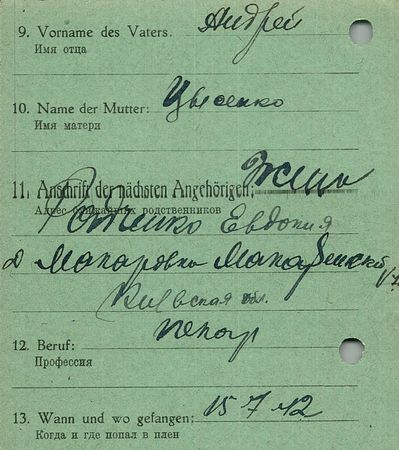 9. Vorname des Vaters: Андрей
Имя отца
10. Name der Mutter: Цысенко
Имя матери
11. Anschrift der nächsten Angehörigen: Жена
Адрес ближайших родственников
Евдокия
д Макаровка Макаровский
Киевская обл.
12. Beruf: пекар
Профессия
13. Wann und wo gefangen: 15 7 42
Когда и где попал в плен